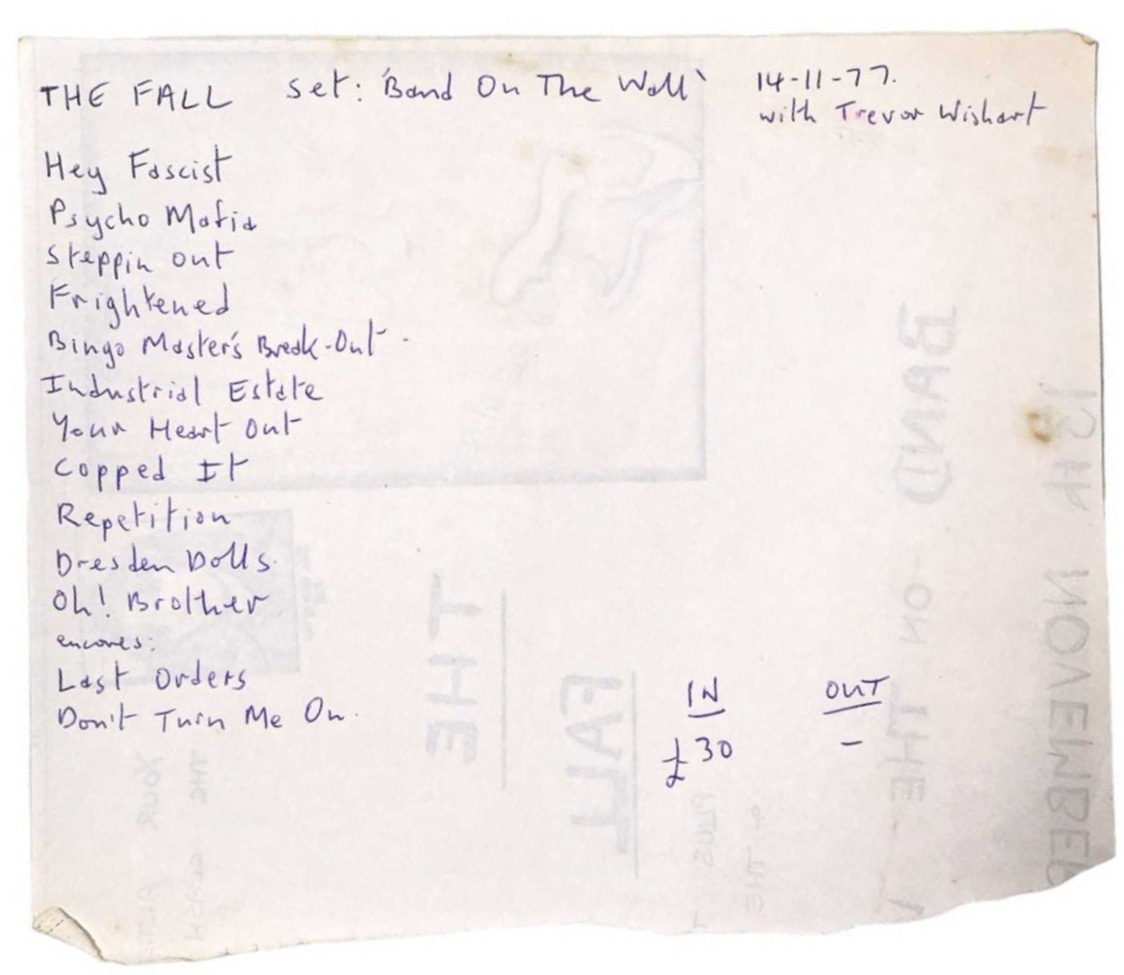 THE FALL set: 'Band On The Wall' 14-11-77.
with Trevor Wishart
Hey Fascist
Psycho Mafia
Steppin out
Frightened
Bingo Master's Break-Out.
Industrial Estate
Your Heart Out
Copped It
Repetition
Dresden Dolls.
Oh! Brother
encores:
Last Orders
Don't Turn Me On.
IN OUT
£30 -
THE
FALL
BAND ON THE
NOVEMBER
PLUS
THE
YOUR